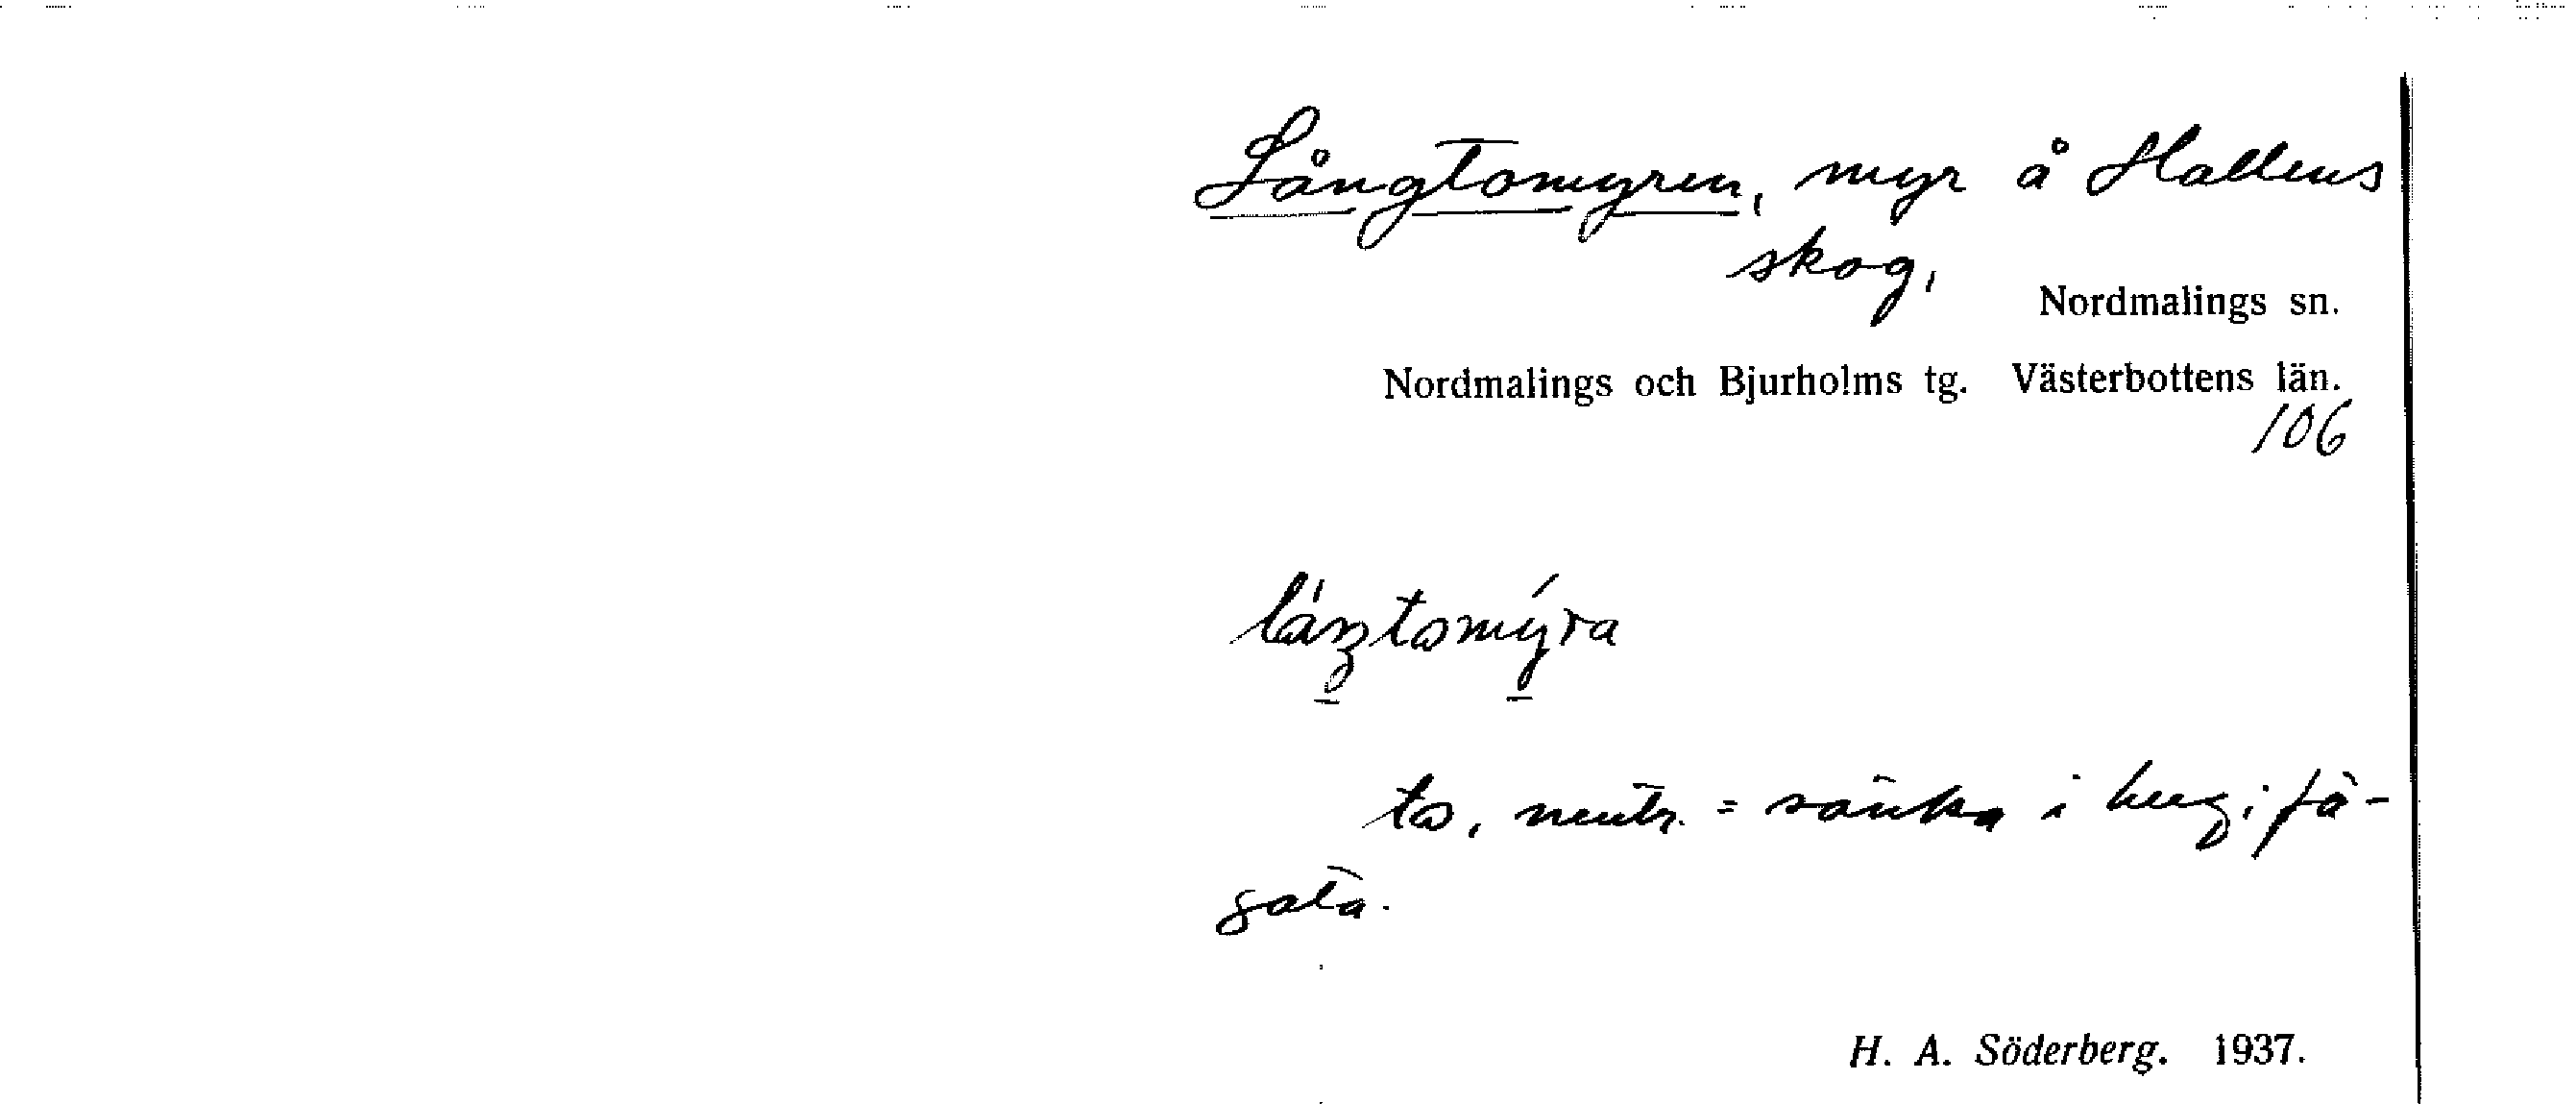 Långtomyren, myr å Hallens
skog,
Nordmalings sn.
Nordmalings och Bjurholms tg. Västerbottens län.
106
to, neutr. = sänka i berg; fä-
gata.
H. A. Söderberg. 1937.